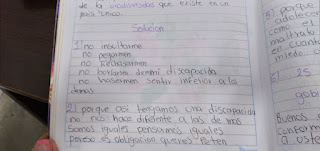 de la diversidad que existe en un
país único.
Solucion
1) no insultarme
no pegarmen
no Rechasarmen
no burlarse denmi discapacida
no hasermen sentir inferior a los
demas
2) porque asi tengamos una discapacida
no nos hace diferente a los de mas
Somos iguales pensarmos iguales
poreso es obligacion queros Peten
5) porque
adolecen
como el
maltrato
en cuanto
miedo a
6) 25
gobi
Buenos
Conform
a uste